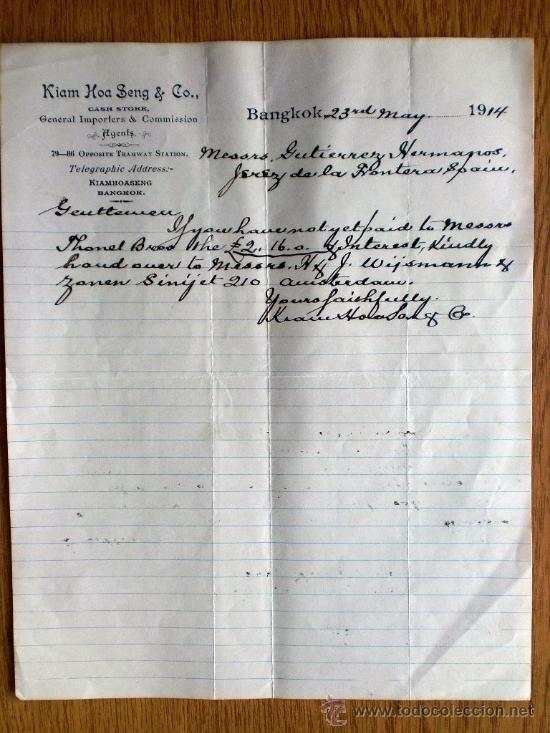 Kiam Hoa Seng & Co.,
CASH STORE,
General Importers & Commission
Agents.
79-86 OPPOSITE TRAMWAY STATION.
Telegraphic Address:-
KIAMHOASENG
BANGKOK.
Bangkok 23rd May 1914
Messrs. Gutierrez Hermanos.
Jerez de la Frontera, Spain.
Gentlemen
If you have not yet paid to Messrs
Thonet Bros the £2.16.0. of Interest, Kindly
hand over to Messrs. H & J. Wijsmann &
Zonen Sinijet 210 Amsterdam.
Yours faithfully.
Kiam Hoa Seng & Co.
todocoleccion
www.todocoleccion.net